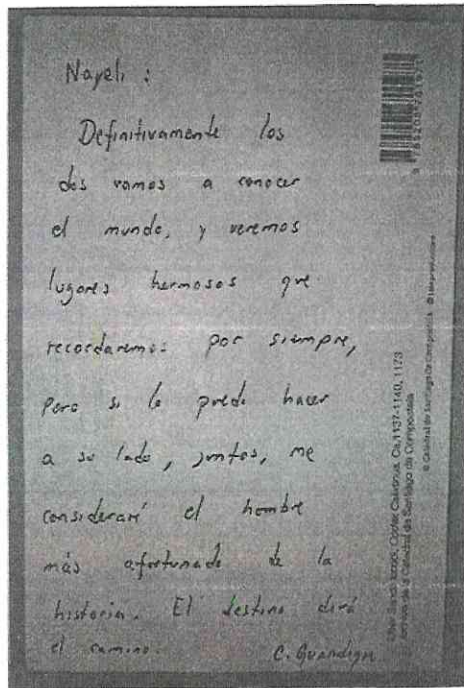 Nayeli:
Definitivamente los
dos vamos a conocer
el mundo, y veremos
lugares hermosos que
recordaremos por siempre,
pero si lo puedo hacer
a su lado, juntos, me
consideraré el hombre
más afortunado de la
historia. El destino dirá
el camino.
C.
Liber Sancti Iacobi, Codex Calixtinus, Ca. 1137-1140, 1173
Archivo de la Catedral de Santiago de Compostela
© Catedral de Santiago de Compostela